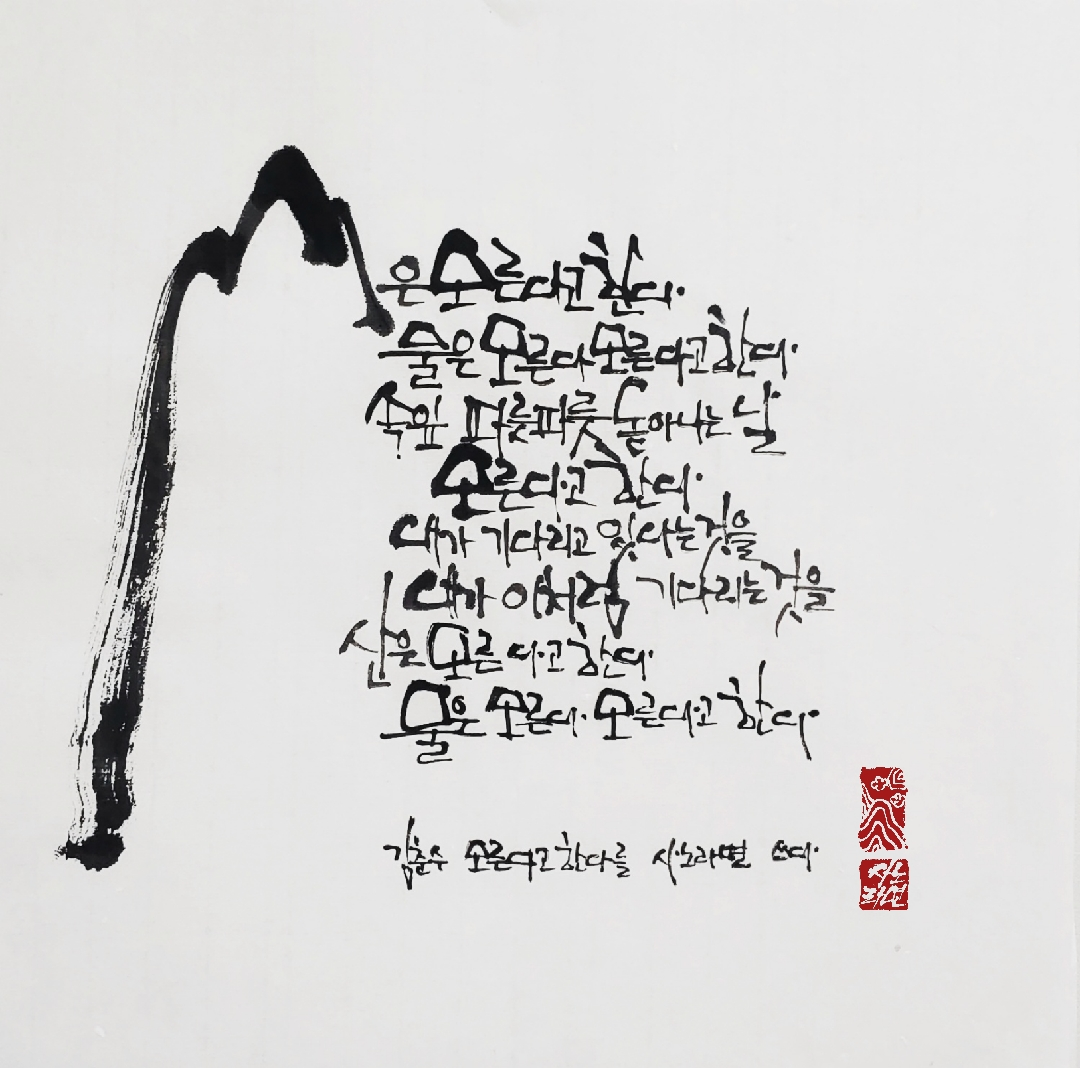 은 모른다고 한다.
물은 모른다 모른다고 한다.
속잎 파릇파릇 돋아나는 날
모른다고 한다.
내가 기다리고 있다는 것을
내가 이처럼 기다리는 것을
산은 모른다고 한다.
물은 모른다. 모른다고 한다.
김춘수 모른다고 한다를 쓰다.